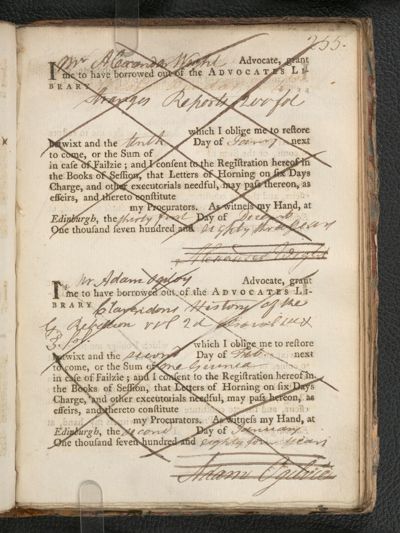 255.
I Mr Alexander Wight Advocate, grant
me to have borrowed out of the ADVOCATES LI-
BRARY
Reports fol
which I oblige me to restore
betwixt and the tenth Day of next
to come, or the Sum of
in case of Failzie; and I consent to the Registration hereof in
the Books of Session, that Letters of Horning on six Days
Charge, and other executorials needful, may pass hereon, as
effeirs, and thereto constitute
my Procurators. As witness my Hand, at
Edinburgh, the thirty first Day of Decemb
One thousand seven hundred and eighty three years
Alexander Wight
I Mr Adam Ogilvy Advocate, grant
me to have borrowed out of the ADVOCATES LI-
BRARY Clarendons History of the
Rebellion vol 2d
3. fol
which I oblige me to restore
betwixt and the second Day of Feb. next
to come, or the Sum of one Guinea
in case of Failzie; and I consent to the Registration hereof in
the Books of Session, that Letters of Horning on six Days
Charge, and other executorials needful, may pass hereon, as
effeirs, and thereto constitute
my Procurators. As witness my Hand, at
Edinburgh, the second Day of January
One thousand seven hundred and eighty four years
Adam Ogilvie